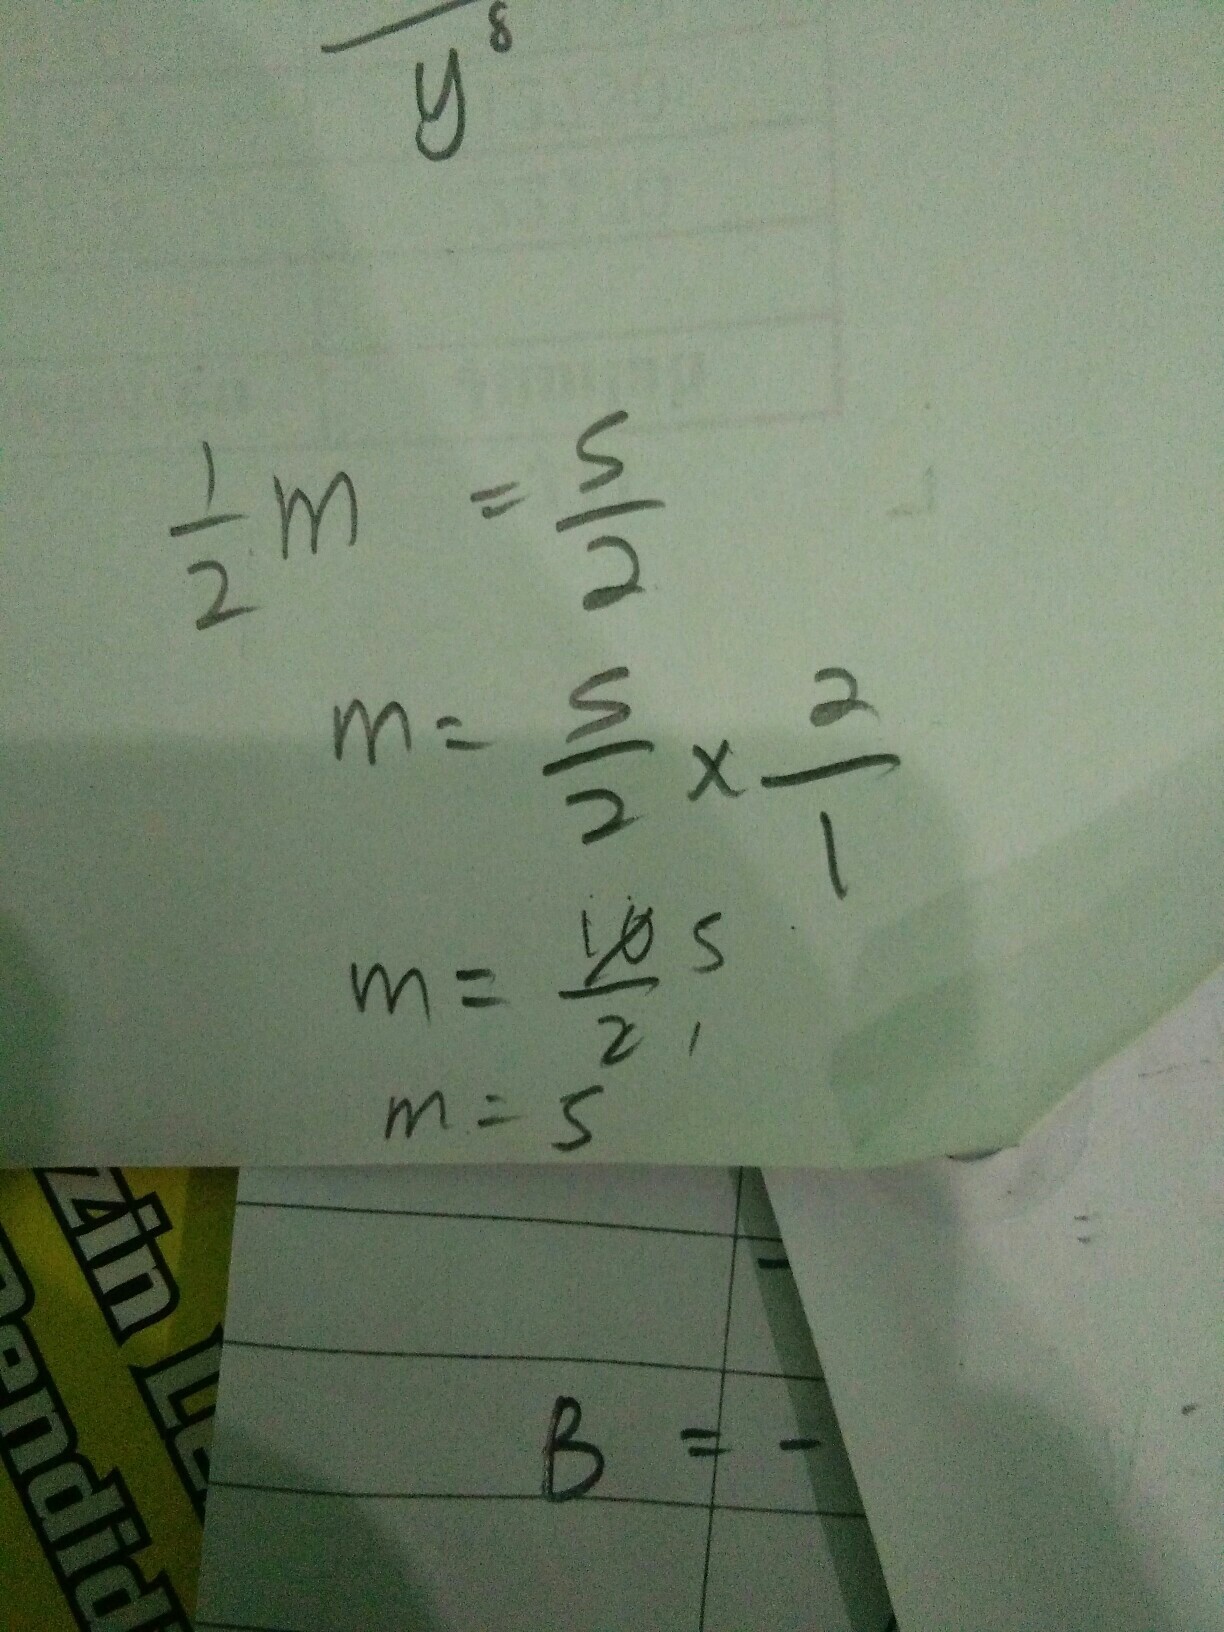 y⁸
1/2 m = 5/2
m = 5/2 × 2/1
m = 10/2 5 1
m = 5
zin L
endid
B = -